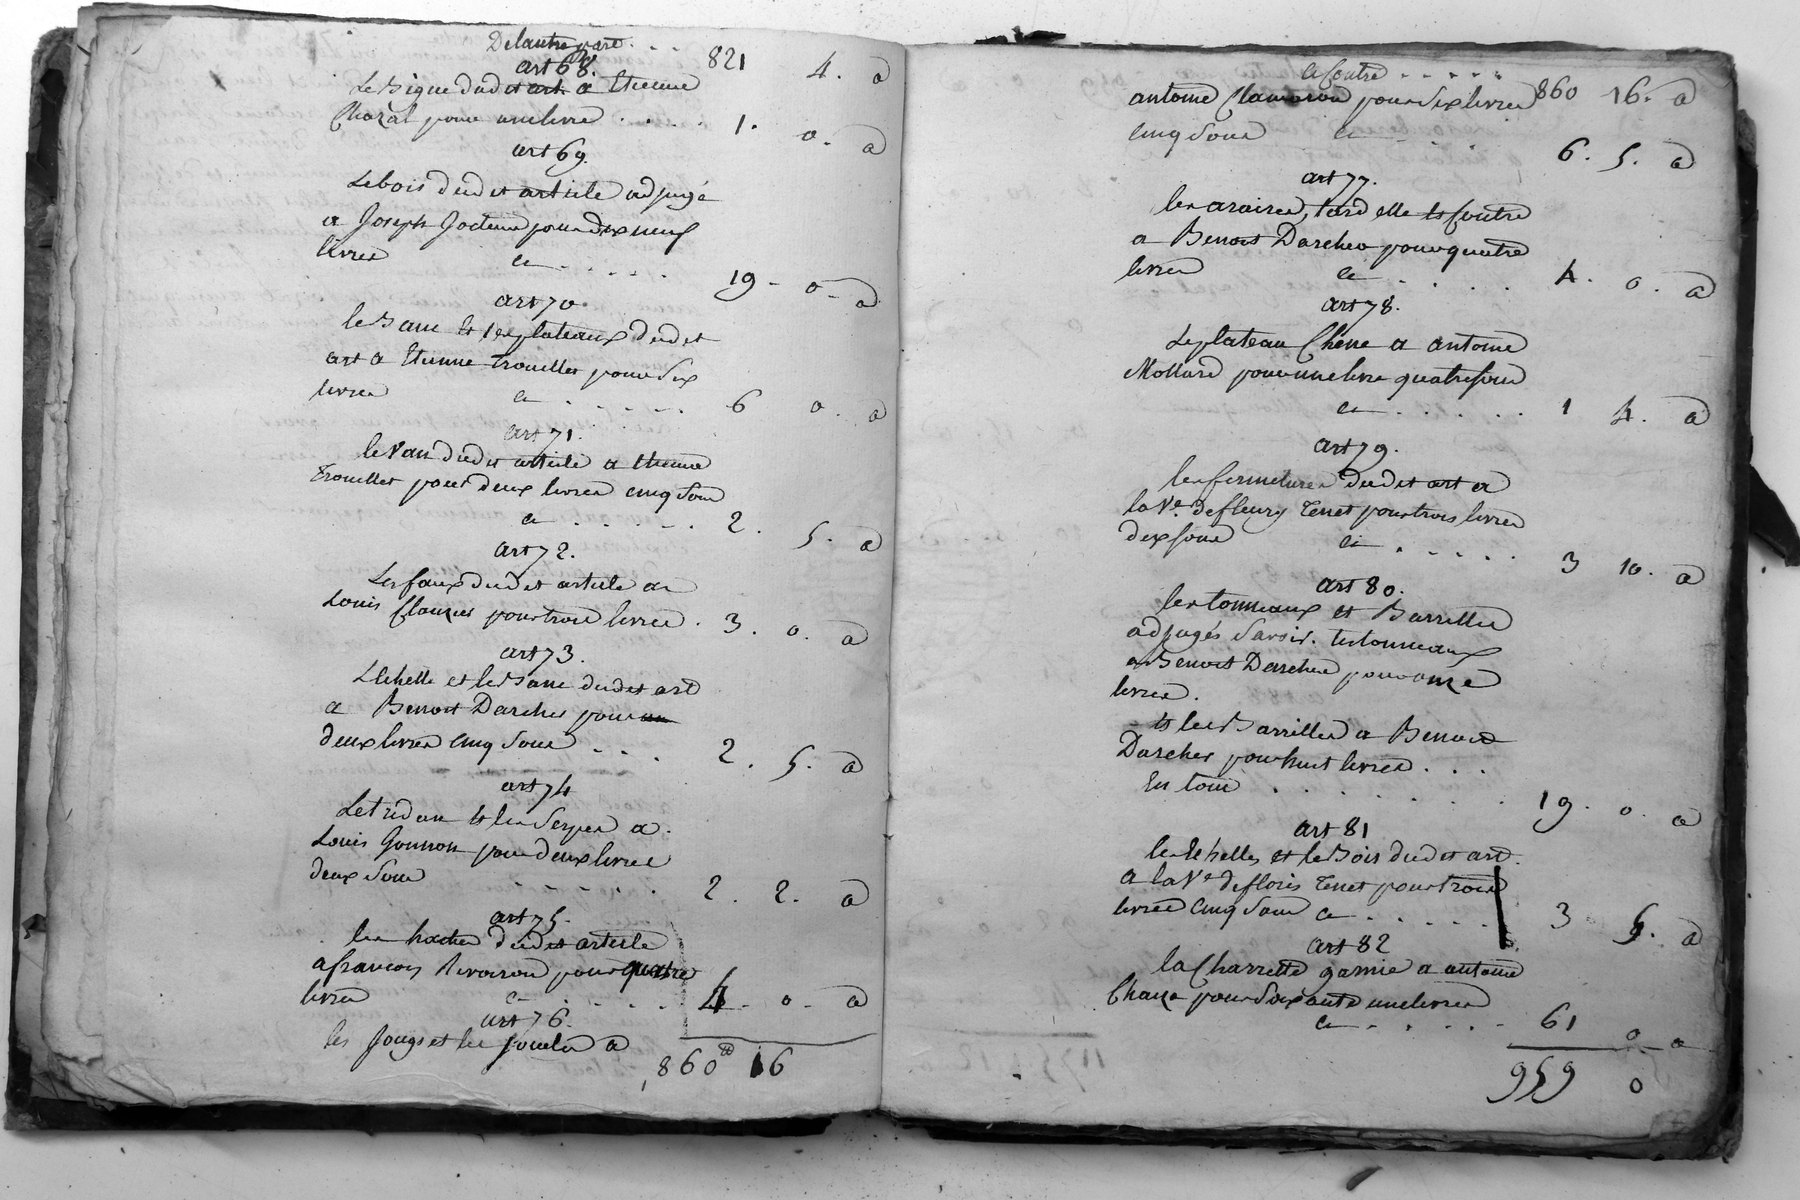 De lautre part . . . 821 4. a
art 68.
Le Bigue dudit art. a Etienne
Chazal pour une livre . . . . 1. 0. a
art 69.
Le bois dudit article adjugé
a Joseph Jocteur pour dix neuf
livres ci . . . . . 19 - 0 - a
art 70
le Banc et les plateaux dudit
art a Etienne trouillet pour six
livres ci . . . . . 6 0. a
art 71.
le Van dudit article a Etienne
trouillet pour deux livres cinq sous
ci . . . . . 2. 5. a
art 72.
Les faux dudit article a
Louis pour trois livres . 3. 0. a
art 73.
L'Echelle et le Banc dudit art
a Benoit Darcher pour un
deux livres cinq sous . . . 2. 5. a
art 74
Le tridan et les serpes a
Louis Gounon pour deux livres
deux sous . . . . . 2. 2. a
art 75.
les haches dudit article
a francois Rivoiron pour quatre
livres ci . . . . . 4 - 0 - a
art 76.
les Jougs et les a
860 16
Ci Contre . . . . . 860 16. a
antoine pour six livres
cinq sous ci 6. 5. a
art 77.
les araires, tard elle et Coutre
a Benoit Darcher pour quatre
livres ci . . . . . 4. 0. a
art 78.
Le plateau Chêne a antoine
Mollard pour une livre quatre sous
ci . . . . . 1 4. a
art 79.
les fermetures dudit art a
la Ve. de fleury Tenet pour trois livres
dix sous ci . . . . . 3 10. a
art 80.
les tonneaux et Barrilles
adjugés savoir. les tonneaux
a Benoit Darcher pour onze
livres.
- et les Barrilles a Benoit
Darcher pour huit livres . . .
En tout . . . . . . . 19. 0. a
art 81
les Echelles et le Bois dudit art.
a la Ve de floris Tenet pour trois
livres cinq sous ci . . . . . 3 5. a
art 82
la Charrette garnie a antoine
Chaze pour soixante une livres
ci . . . . . 61 0 a
959 0